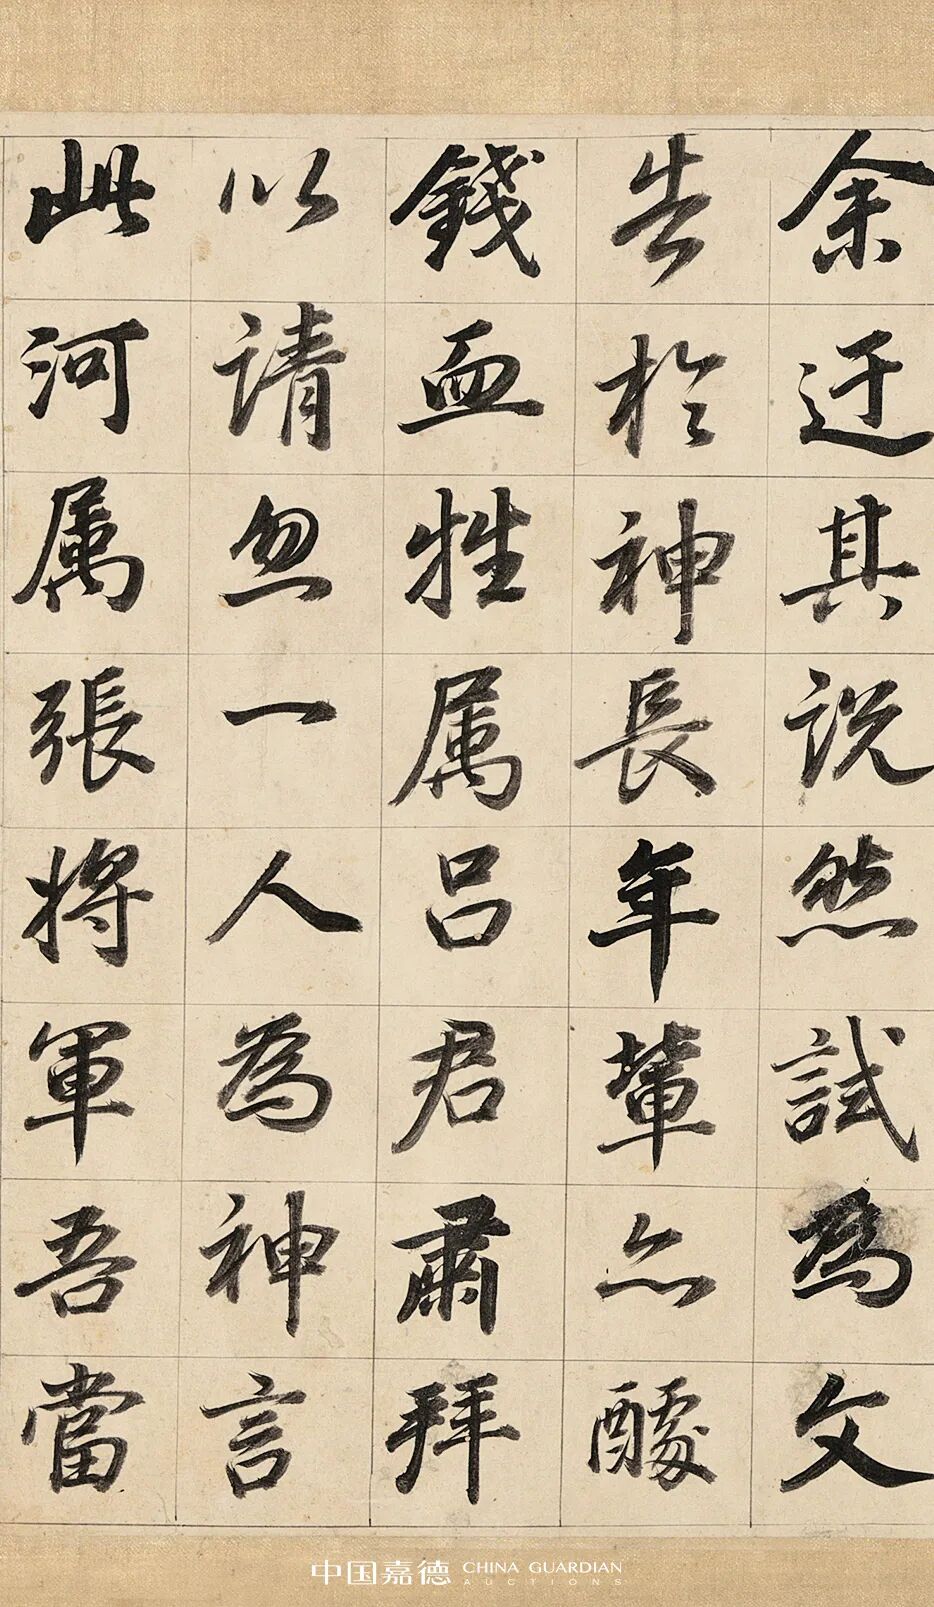 余迂其説然試為文
告於神長年輩亦醵
錢血牲属吕君肅拜
以請忽一人為神言
此河属張將軍吾當
中国嘉德 CHINA GUARDIAN
AUCTIONS